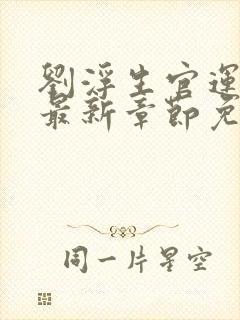 劉浮生官運
最新章節免
同一片星空